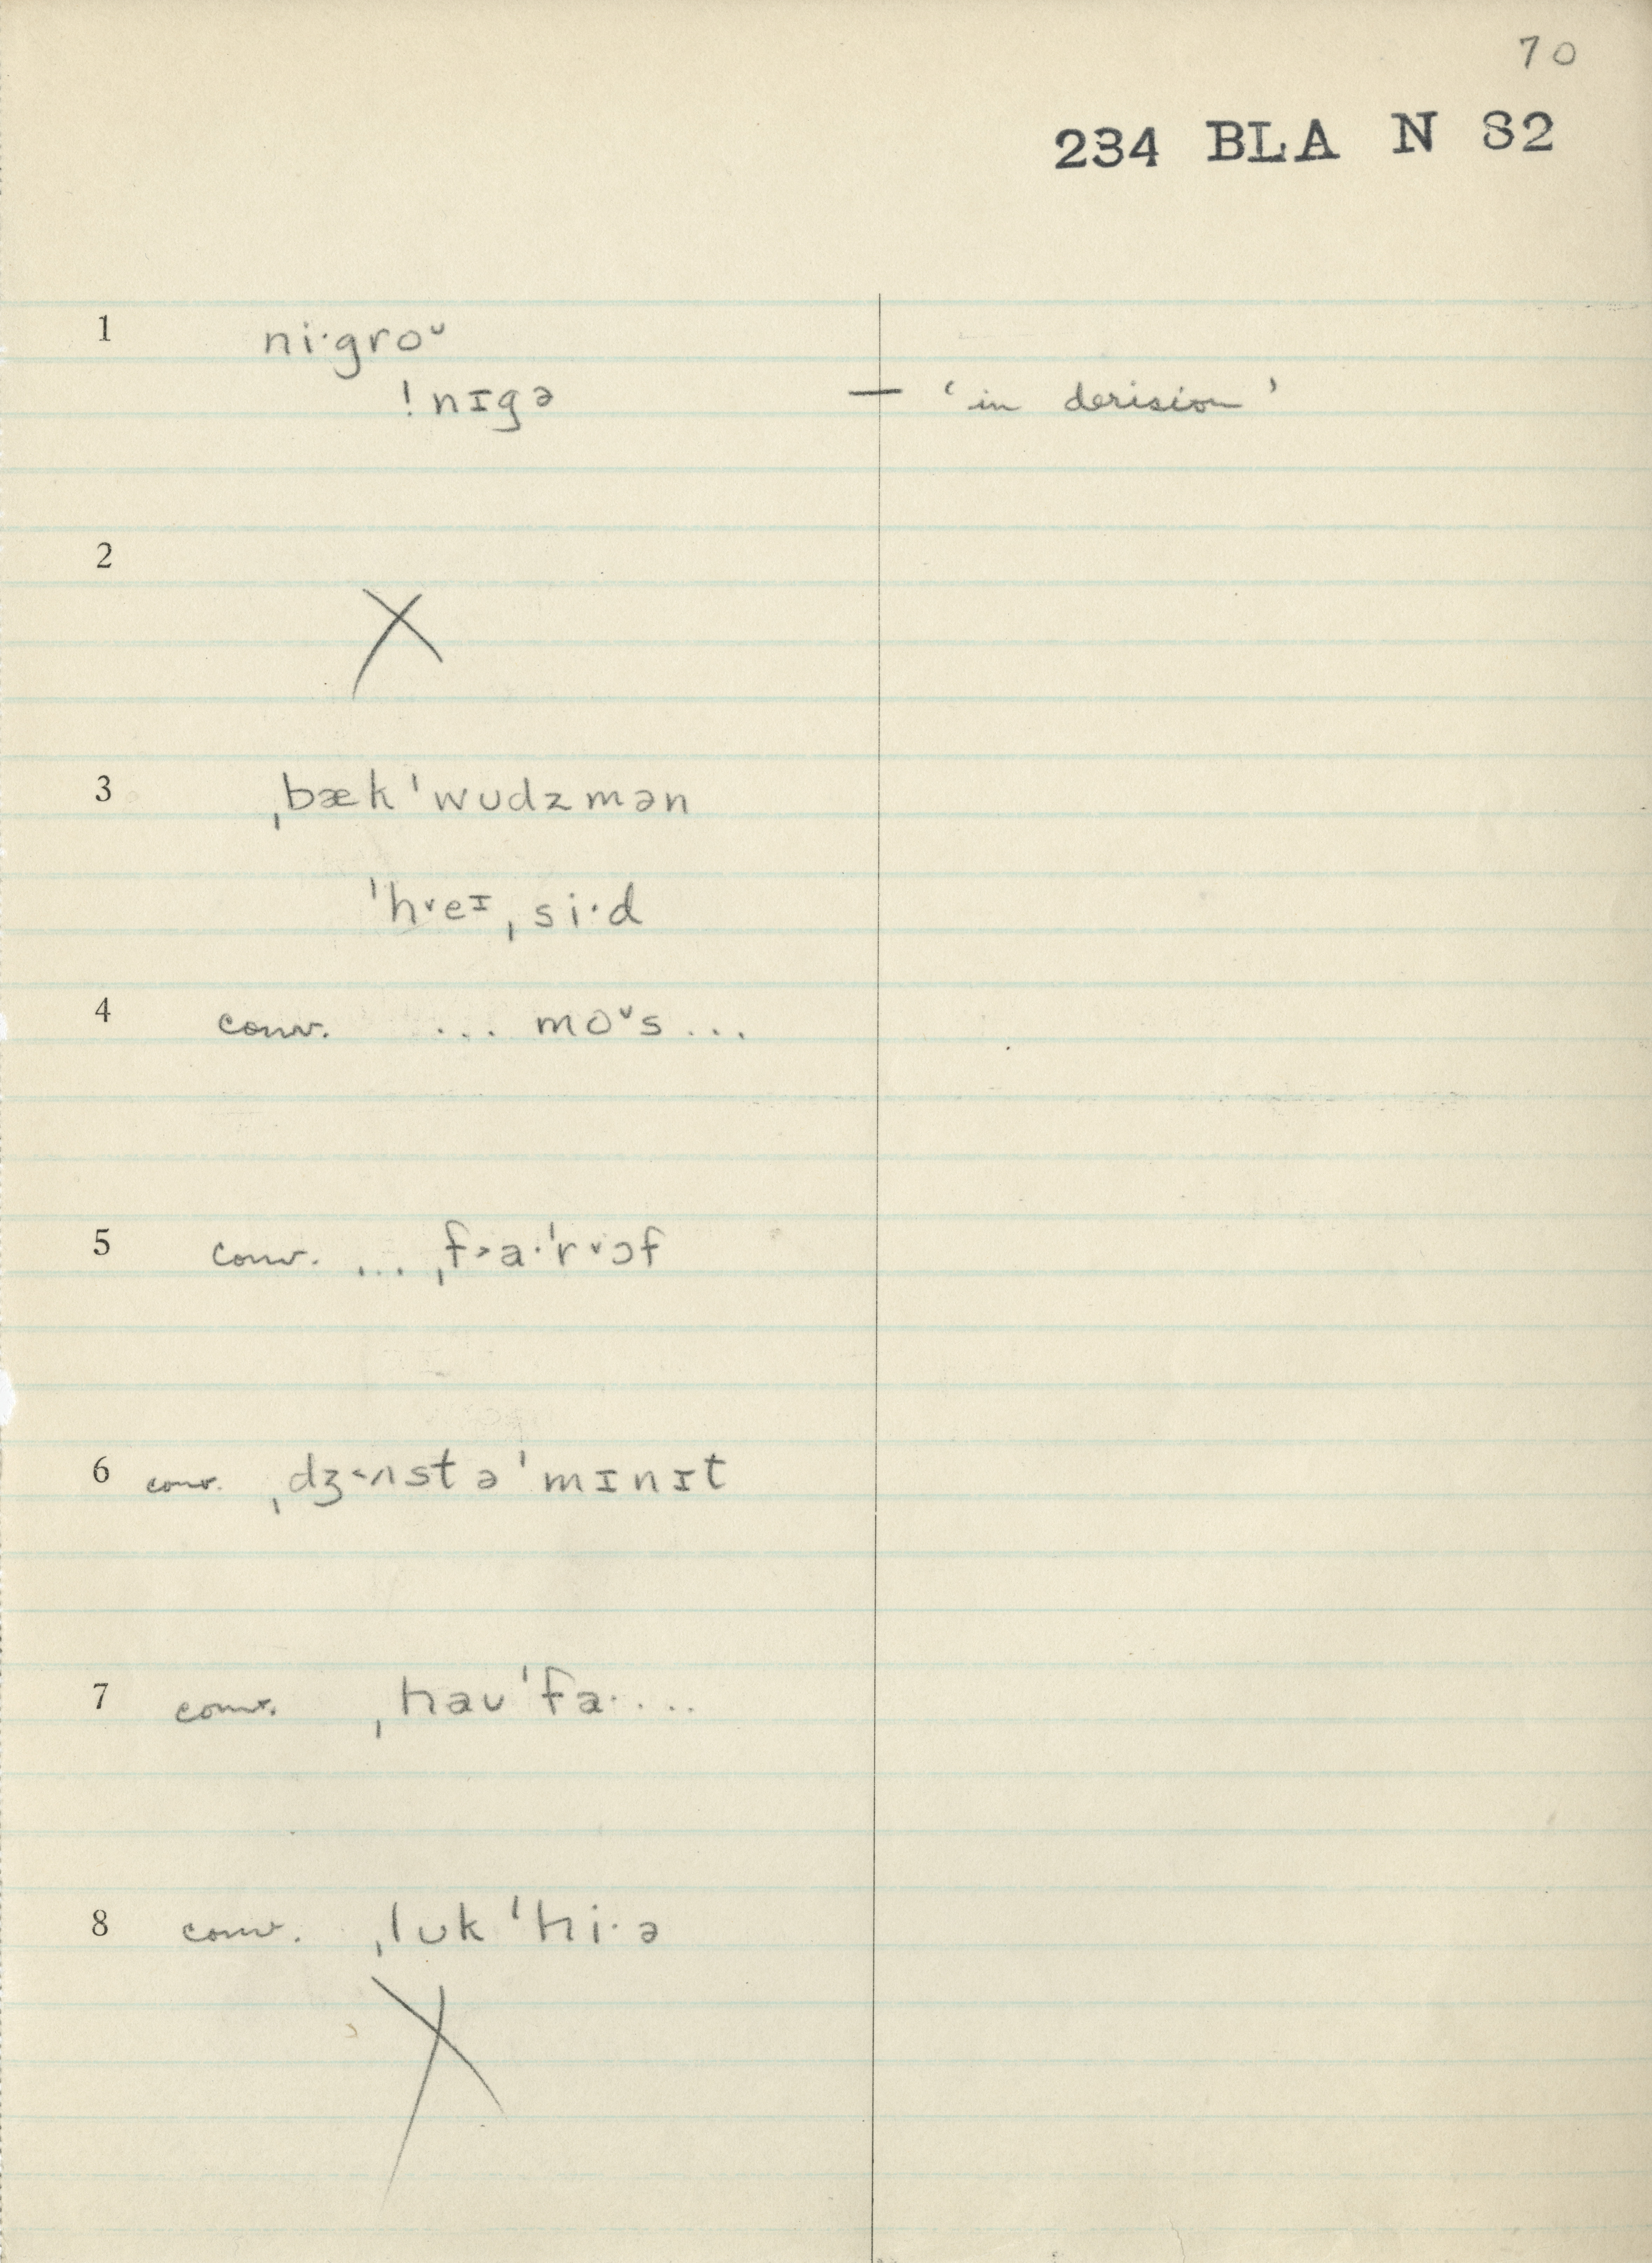 70
234 BLA N 82
1 ni·groᴗ
!nɪgə — 'in derision'
2 X
3 ˌbæk ˈwʊdzmən
ˈh˅eɪˌsi·d
4 conv. ... moᴗs ...
5 conv. ... ˌf˃a·ˈr˅ɔf
6 conv. ˌdʒ˂ʌst ə ˈmɪnɪt
7 conv. ˌhaʊˈfa· ...
8 conv. ˌlʊk ˈhi·ə
X